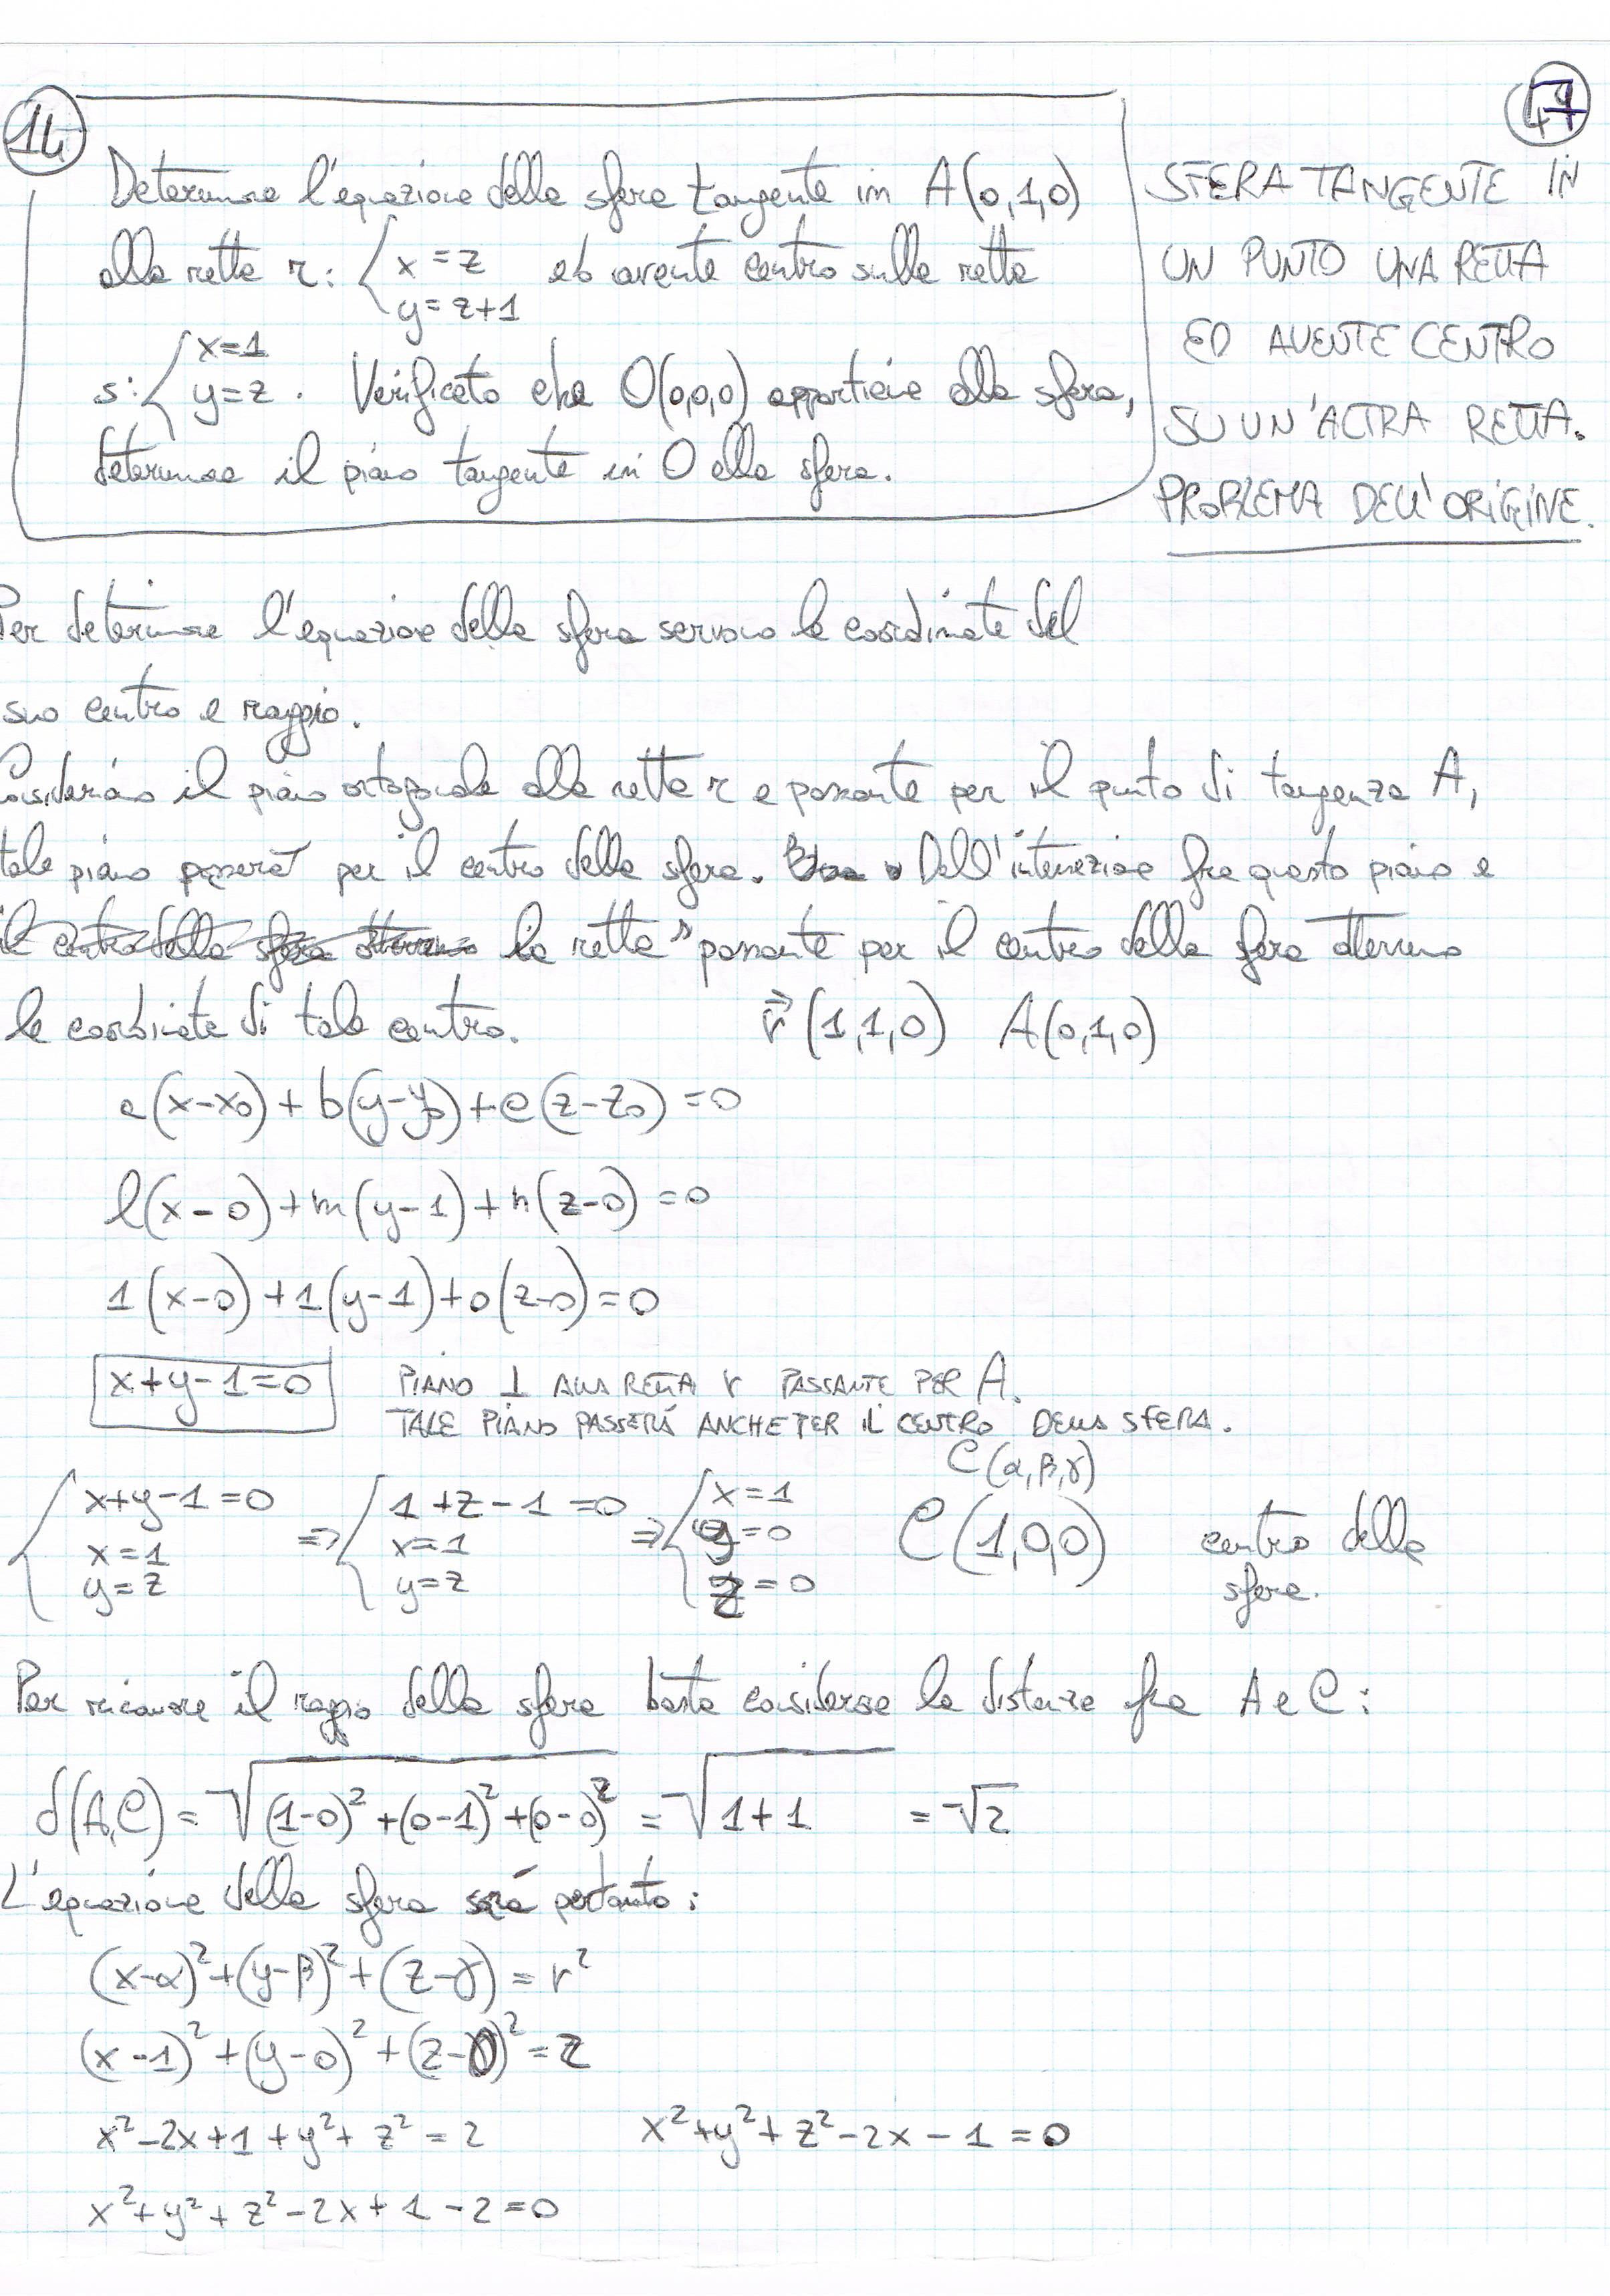 14
47
Determinare l'equazione della sfera tangente in A(0,1,0)
alla retta r: { x=z
y=z+1 ed avente centro sulla retta
s: { x=1
y=z . Verificato che O(0,0,0) appartiene alla sfera,
determinare il piano tangente in O alla sfera.
SFERA TANGENTE IN
UN PUNTO UNA RETTA
ED AVENTE CENTRO
SU UN'ALTRA RETTA.
PROBLEMA DELL'ORIGINE.
Per determinare l'equazione della sfera servono le coordinate del
suo centro e raggio.
Consideriamo il piano ortogonale alla retta r e passante per il punto di tangenza A,
tale piano passerà per il centro della sfera. Dall'intersezione fra questo piano e
il centro della sfera otterremo la retta s passante per il centro della sfera otterremo
le coordinate di tale centro. r⃗ (1,1,0) A(0,1,0)
a(x-x₀)+b(y-y₀)+c(z-z₀)=0
l(x-0)+m(y-1)+n(z-0)=0
1(x-0)+1(y-1)+0(z-0)=0
x+y-1=0
PIANO ⊥ ALLA RETTA r PASSANTE PER A.
TALE PIANO PASSERÁ ANCHE PER IL CENTRO DELLA SFERA.
C(α,β,γ)
{ x+y-1=0 ⇒ { 1+z-1=0 ⇒ { x=1
x=1 x=1 y=0 C(1,0,0) centro della
y=z y=z z=0 sfera.
Per ricavare il raggio della sfera basta considerare la distanza fra A e C:
d(A,C) = √(1-0)²+(0-1)²+(0-0)² = √1+1 = √2
L'equazione della sfera sará pertanto:
(x-α)²+(y-β)²+(z-γ) = r²
(x-1)²+(y-0)²+(z-0)²=2
x²-2x+1+y²+z²=2 x²+y²+z²-2x-1=0
x²+y²+z²-2x+1-2=0